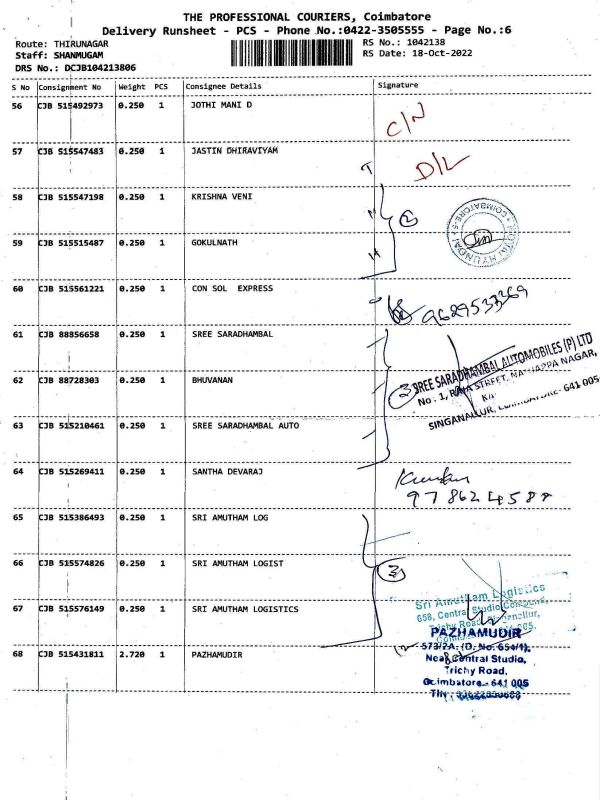 THE PROFESSIONAL COURIERS, Coimbatore
Delivery Runsheet - PCS - Phone No.:0422-3505555 - Page No.:6
Route: THIRUNAGAR RS No.: 1042138
Staff: SHANMUGAM RS Date: 18-Oct-2022
DRS No.: DCJB104213806
S No Consignment No Weight PCS Consignee Details Signature
56 CJB 515492973 0.250 1 JOTHI MANI D
C/N
57 CJB 515547483 0.250 1 JASTIN DHIRAVIYAM
D/L
58 CJB 515547198 0.250 1 KRISHNA VENI
2
59 CJB 515515487 0.250 1 GOKULNATH
60 CJB 515561221 0.250 1 CON SOL EXPRESS
9629533369
61 CJB 88856658 0.250 1 SREE SARADHAMBAL
62 CJB 88728303 0.250 1 BHUVANAN
3
SREE SARADHAMBAL AUTOMOBILES (P) LTD
No: 1, RAJA STREET, NANJAPPA NAGAR,
SINGANALLUR, COIMBATORE- 641 005
63 CJB 515210461 0.250 1 SREE SARADHAMBAL AUTO
64 CJB 515269411 0.250 1 SANTHA DEVARAJ
65 CJB 515386493 0.250 1 SRI AMUTHAM LOG
66 CJB 515574826 0.250 1 SRI AMUTHAM LOGIST
3
67 CJB 515576149 0.250 1 SRI AMUTHAM LOGISTICS
Sri Amutham Logistics
658, Central Studio Compound,
Trichy Road, Singanallur,
68 CJB 515431811 2.720 1 PAZHAMUDIR
PAZHAMUDIR
573/2A, (D. No: 654/1),
Near Central Studio,
Trichy Road,
Coimbatore - 641 005